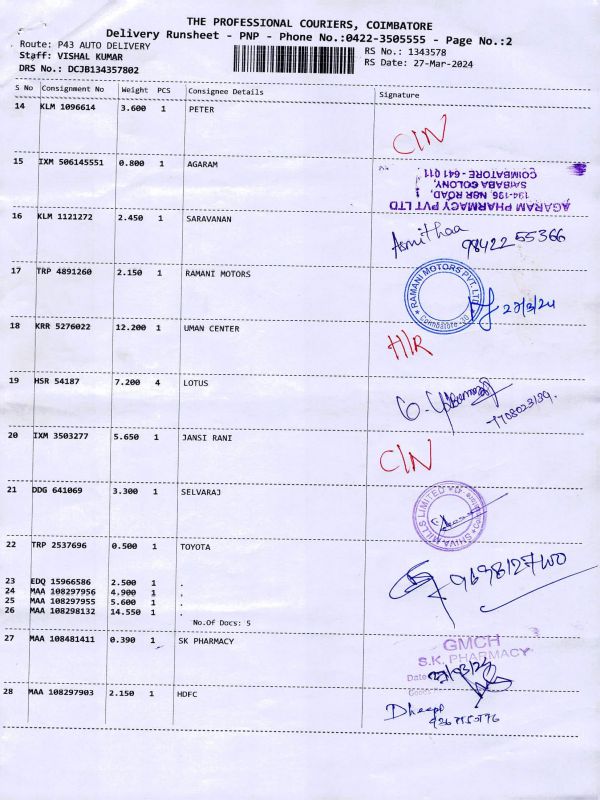 THE PROFESSIONAL COURIERS, COIMBATORE
Delivery Runsheet - PNP - Phone No.:0422-3505555 - Page No.:2
Route: P43 AUTO DELIVERY RS No.: 1343578
Staff: VISHAL KUMAR RS Date: 27-Mar-2024
DRS No.: DCJB134357802
S No Consignment No Weight PCS Consignee Details Signature
14 KLM 1096614 3.600 1 PETER
C/N
15 IXM 506145551 0.800 1 AGARAM
AGARAM PHARMACY PVT LTD
194-196 NSR ROAD,
SAIBABA COLONY,
COIMBATORE - 641 011
16 KLM 1121272 2.450 1 SARAVANAN
Asmithaa 98422 55366
17 TRP 4891260 2.150 1 RAMANI MOTORS
RAMANI MOTORS PVT. LTD
Coimbatore
27/3/24
18 KRR 5276022 12.200 1 UMAN CENTER
H/R
19 HSR 54187 7.200 4 LOTUS
20 IXM 3503277 5.650 1 JANSI RANI
C/N
21 DDG 641069 3.300 1 SELVARAJ
SHIVA MILLS LIMITED
22 TRP 2537696 0.500 1 TOYOTA
23 EDQ 15966586 2.500 1 .
24 MAA 108297956 4.900 1 .
25 MAA 108297955 5.600 1 .
26 MAA 108298132 14.550 1 .
No.Of Docs: 5
27 MAA 108481411 0.390 1 SK PHARMACY
GMCH
S.K. PHARMACY
Date
28 MAA 108297903 2.150 1 HDFC